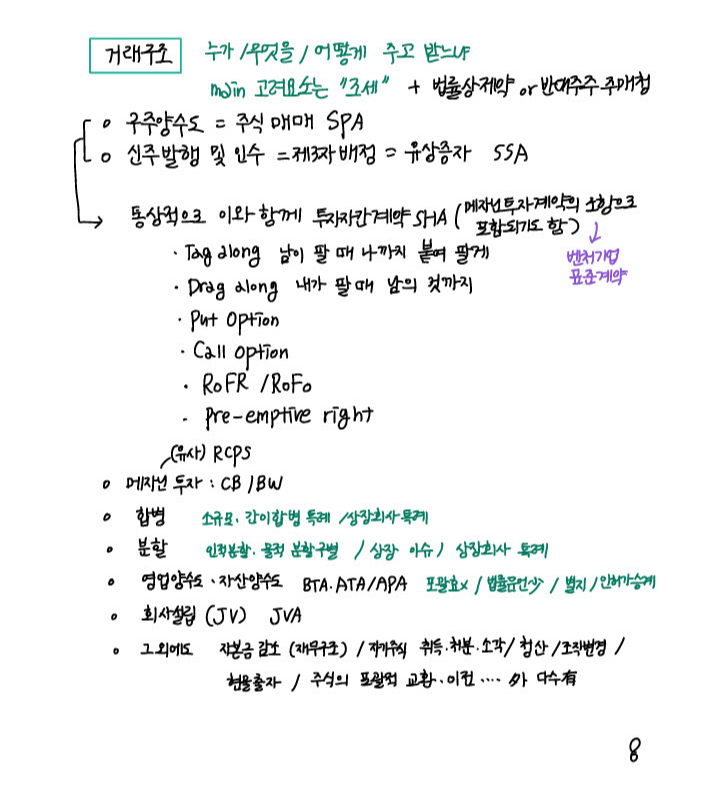 거래구조 누가 / 무엇을 / 어떻게 주고 받느냐
main 고려요소는 "조세" + 법률상제약 or 반대주주 주매청
구주양수도 = 주식매매 SPA
신주발행 및 인수 = 제3자배정 = 유상증자 SSA
통상적으로 이와 함께 투자자간계약 SHA (메자닌투자계약의 조항으로
포함되기도 함)
· Tag along 남이 팔 때 나까지 붙여 팔게
벤처기업
· Drag along 내가 팔때 남의 것까지
표준계약
· Put Option
· Call option
· RoFR / RoFo
· Pre-emptive right
(유사) RCPS
메자닌 투자 : CB / BW
합병 소규모. 간이합병 특례 / 상장회사 특례
분할 인적분할. 물적 분할구별 / 상장 이슈 / 상장회사 특례
영업양수도 · 자산양수도 BTA. ATA / APA 포괄효x / / 별지 / 인허가승계
회사설립 (JV) JVA
그외에도 자본금 감소 (재무구조) / 자기주식 취득·처분·소각 / 청산 / 조직변경 /
현물출자 / 주식의 포괄적 교환·이전 ···· 外 다수有
8